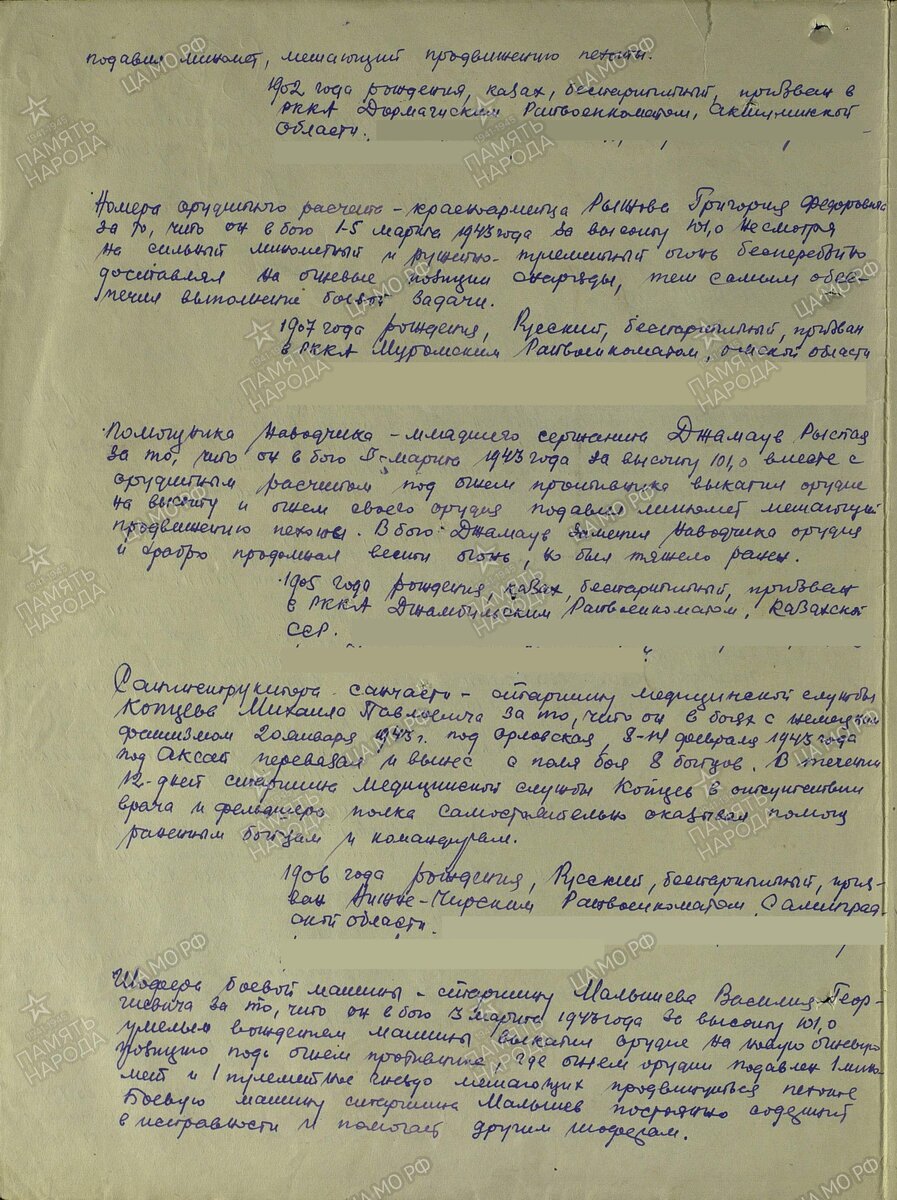 подавил миномет, мешающий продвижению пехоты.
1902 года рождения, казах, беспартийный, призван в
РККА Райвоенкоматом, Акмолинской
области.
Номера орудийного расчета - красноармейца Григория Федоровича
за то, что он в бою 1-5 марта 1943 года за высоту 101,0 несмотря
на сильный минометный и ружейно-пулеметный огонь бесперебойно
доставлял на огневые позиции снаряды, тем самым обес-
печил выполнение боевой задачи.
1907 года рождения, Русский, беспартийный, призван
в РККА Муромским Райвоенкоматом, области
Помощника наводчика - младшего сержанта Джамаув
за то, что он в бою 5 марта 1943 года за высоту 101,0 вместе с
орудийным расчетом под огнем противника выкатил орудие
на высоту и огнем своего орудия подавил миномет мешающий
продвижению пехоты. В бою Джамаув заменил наводчика орудия
и храбро продолжал вести огонь, но был тяжело ранен.
1905 года рождения, казах, беспартийный, призван
в РККА Джамбульским Райвоенкоматом, Казахской
ССР.
Санинструктора санчасти - старшину медицинской службы
Копцева Михаила Павловича за то, что он в боях с немецким
фашизмом 20 января 1943 г. под Орловская, 8-14 февраля 1943 года
под Аксай перевязал и вынес с поля боя 8 бойцов. В течении
12-дней старшина медицинской службы Копцев в отсутствии
врача и фельдшера полка самостоятельно оказывал помощь
раненным бойцам и командирам.
1906 года рождения, Русский, беспартийный, приз-
ван Нижне-Чирским Райвоенкоматом, Сталинград-
ской области.
Шофера боевой машины - старшину Малышева Василия Геор-
гиевича за то, что он в бою 3 марта 1943 года за высоту 101,0
умелым вождением машины выкатил орудие на новую огневую
позицию под огнем противника, где огнем орудия подавлен 1 мино-
мет и 1 пулеметное гнездо мешающих продвигаться пехоте
Боевую машину старшина Малышев постоянно содержит
в исправности и помогает другим шоферам.
ЦАМО.РФ
1941-1945
ПАМЯТЬ
НАРОДА